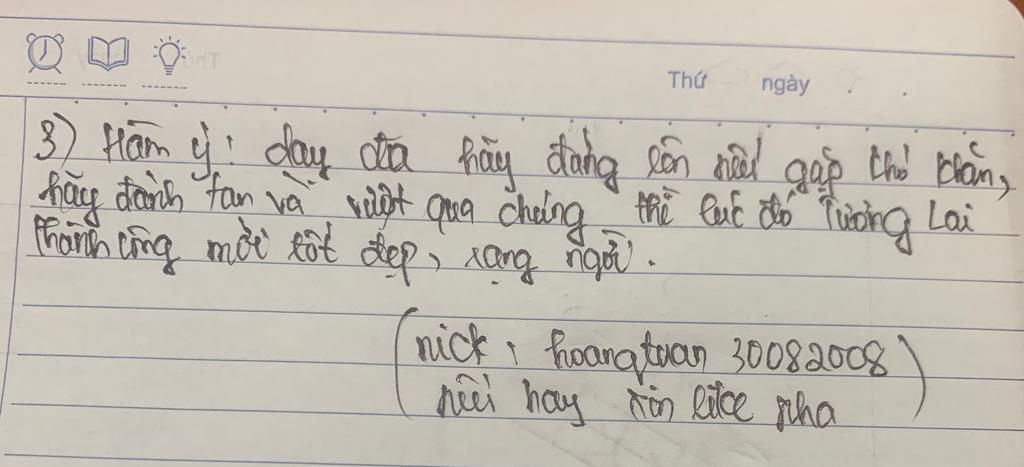 Thứ ngày
3) Hàm ý: day dứa hãy đứng lên nếu gặp khó khăn,
hãy đánh tan và vượt qua chúng thì lúc đó Tương Lai
thành công mới tốt đẹp, rạng ngời.
(nick: hoangtuan 30082008)
nếu hay xin like nha